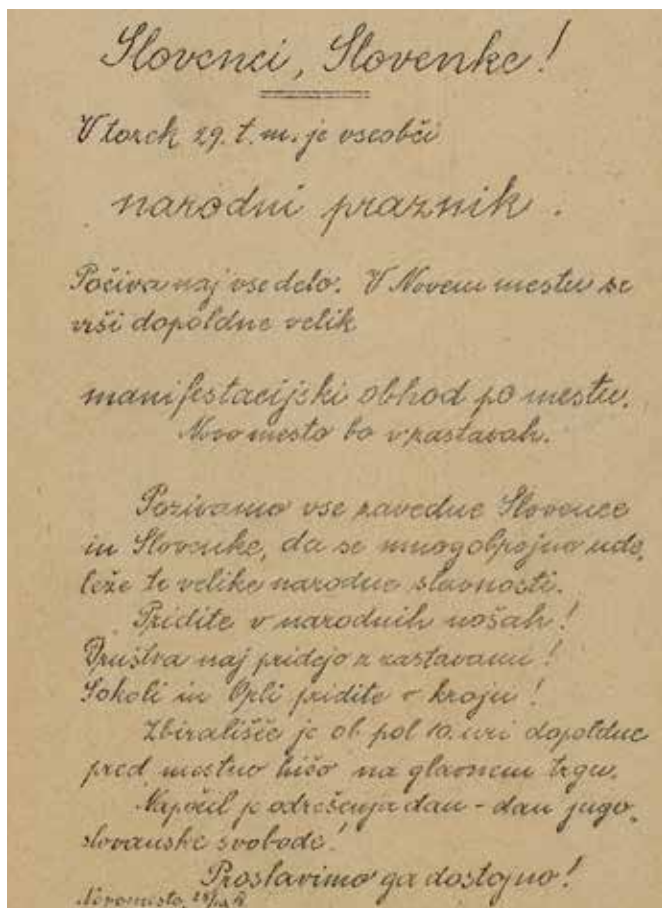 Slovenci, Slovenke!
V torek 29. t. m. je vseobči
narodni praznik.
Počiva naj vse delo. V Novem mestu se
vrši dopoldne velik
manifestacijski obhod po mestu.
Novo mesto bo v zastavah.
Pozivamo vse zavedne Slovence
in Slovenke, da se mnogobrojno ude,
leže te velike narodne slavnosti.
Pridite v narodnih nošah!
Društva naj pridejo z zastavami!
Sokoli in Orli pridite v kroju!
Zbirališče je ob pol 10. uri dopoldne
pred mestno hišo na glavnem trgu.
Napočil je odrešenja dan - dan jugo,
slovanske svobode!
Proslavimo ga dostojno!
Novomesto,